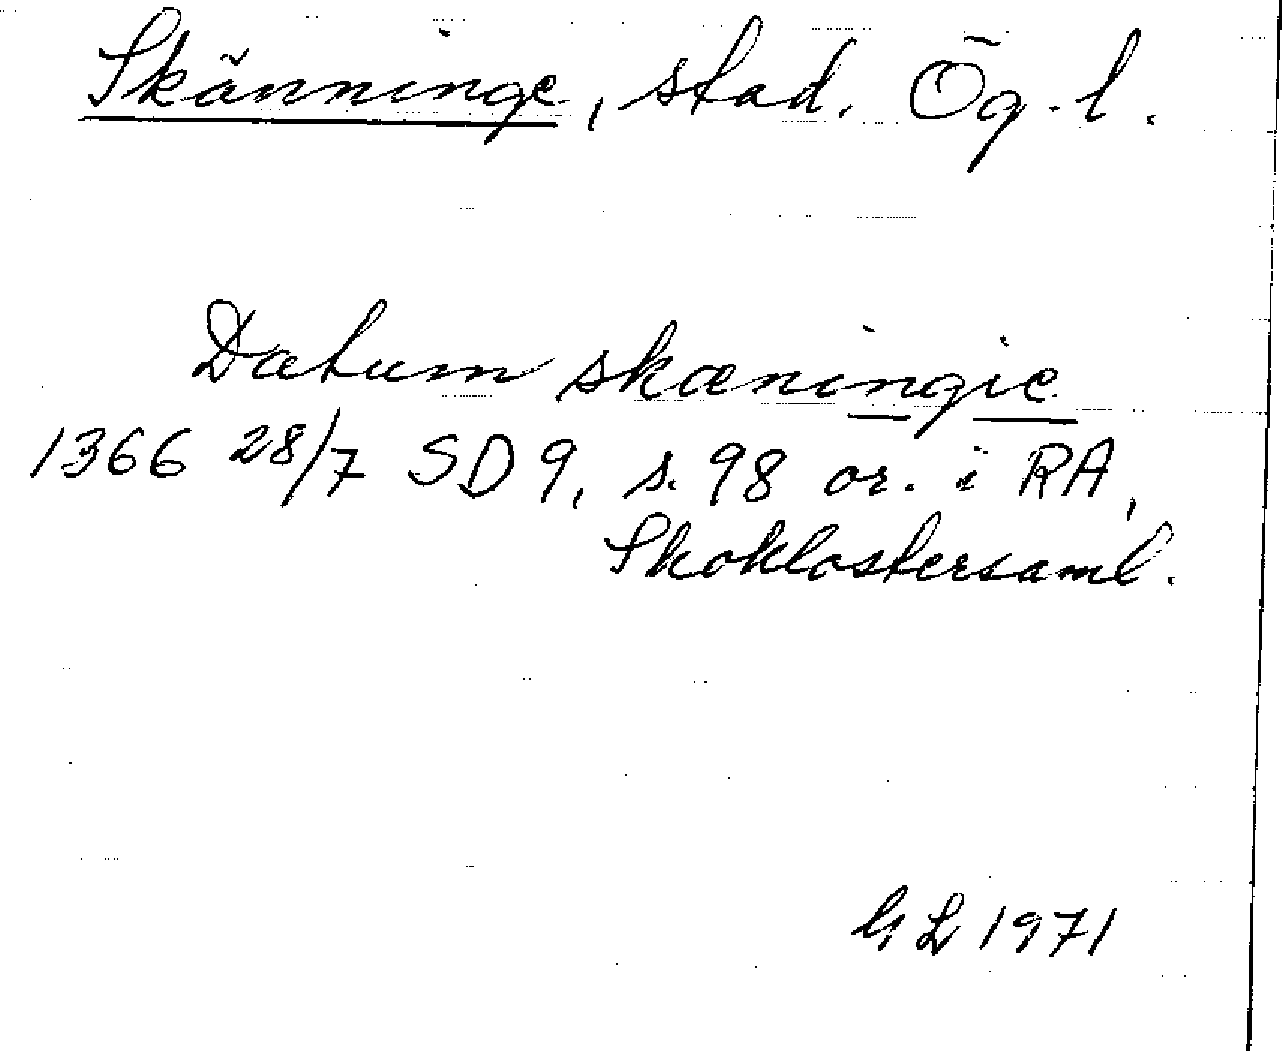 Skänninge, stad. Ög. l.
Datum skæningie
1366 28/7 SD 9, s. 98 or. i RA,
Skoklostersaml.
GL 1971